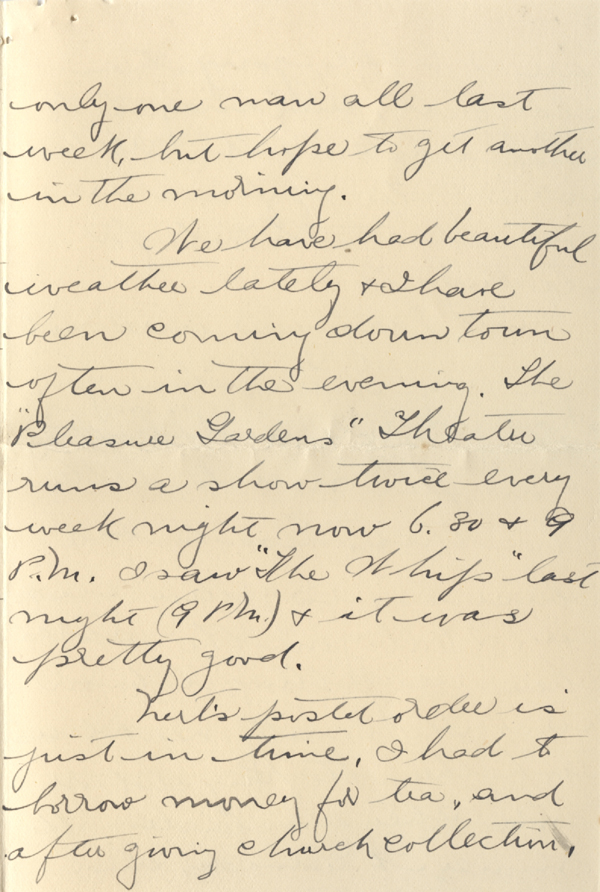 only one man all last
week, but hope to get another
in the morning.
We have had beautiful
weather lately & I have
been coming down town
often in the evening. The
"Pleasure Gardens" Theatre
runs a show twice every
week night now 6.30 & 9
P.M. I saw "The Whip" last
night (9 P.M.) & it was
pretty good.
postal order is
just in time, I had to
borrow money for tea, and
after giving church collection,